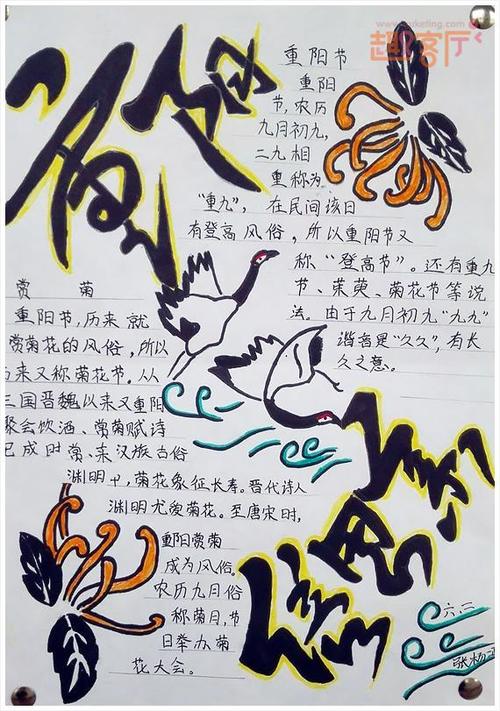 www.rketing.com
趣客厅
重阳
重阳节
重阳
节，农历
九月初九，
二九相
重称为
“重九”，在民间该日
有登高风俗，所以重阳节又
称“登高节”。还有重九
节、茱萸、菊花节等说
法。由于九月初九“九九”
谐音是“久久”，有长
久之意。
赏菊
重阳节，历来就
赏菊花的风俗，所以
来又称菊花节。从
三国晋魏以来又重阳
聚会饮酒、赏菊赋诗
已成时赏、来汉族古俗
渊明中，菊花象征长寿。晋代诗人
渊明尤爱菊花。至唐宋时，
重阳赏菊
成为风俗。
农历九月俗
称菊月，节
日举办菊
花大会。
六.二
张杨